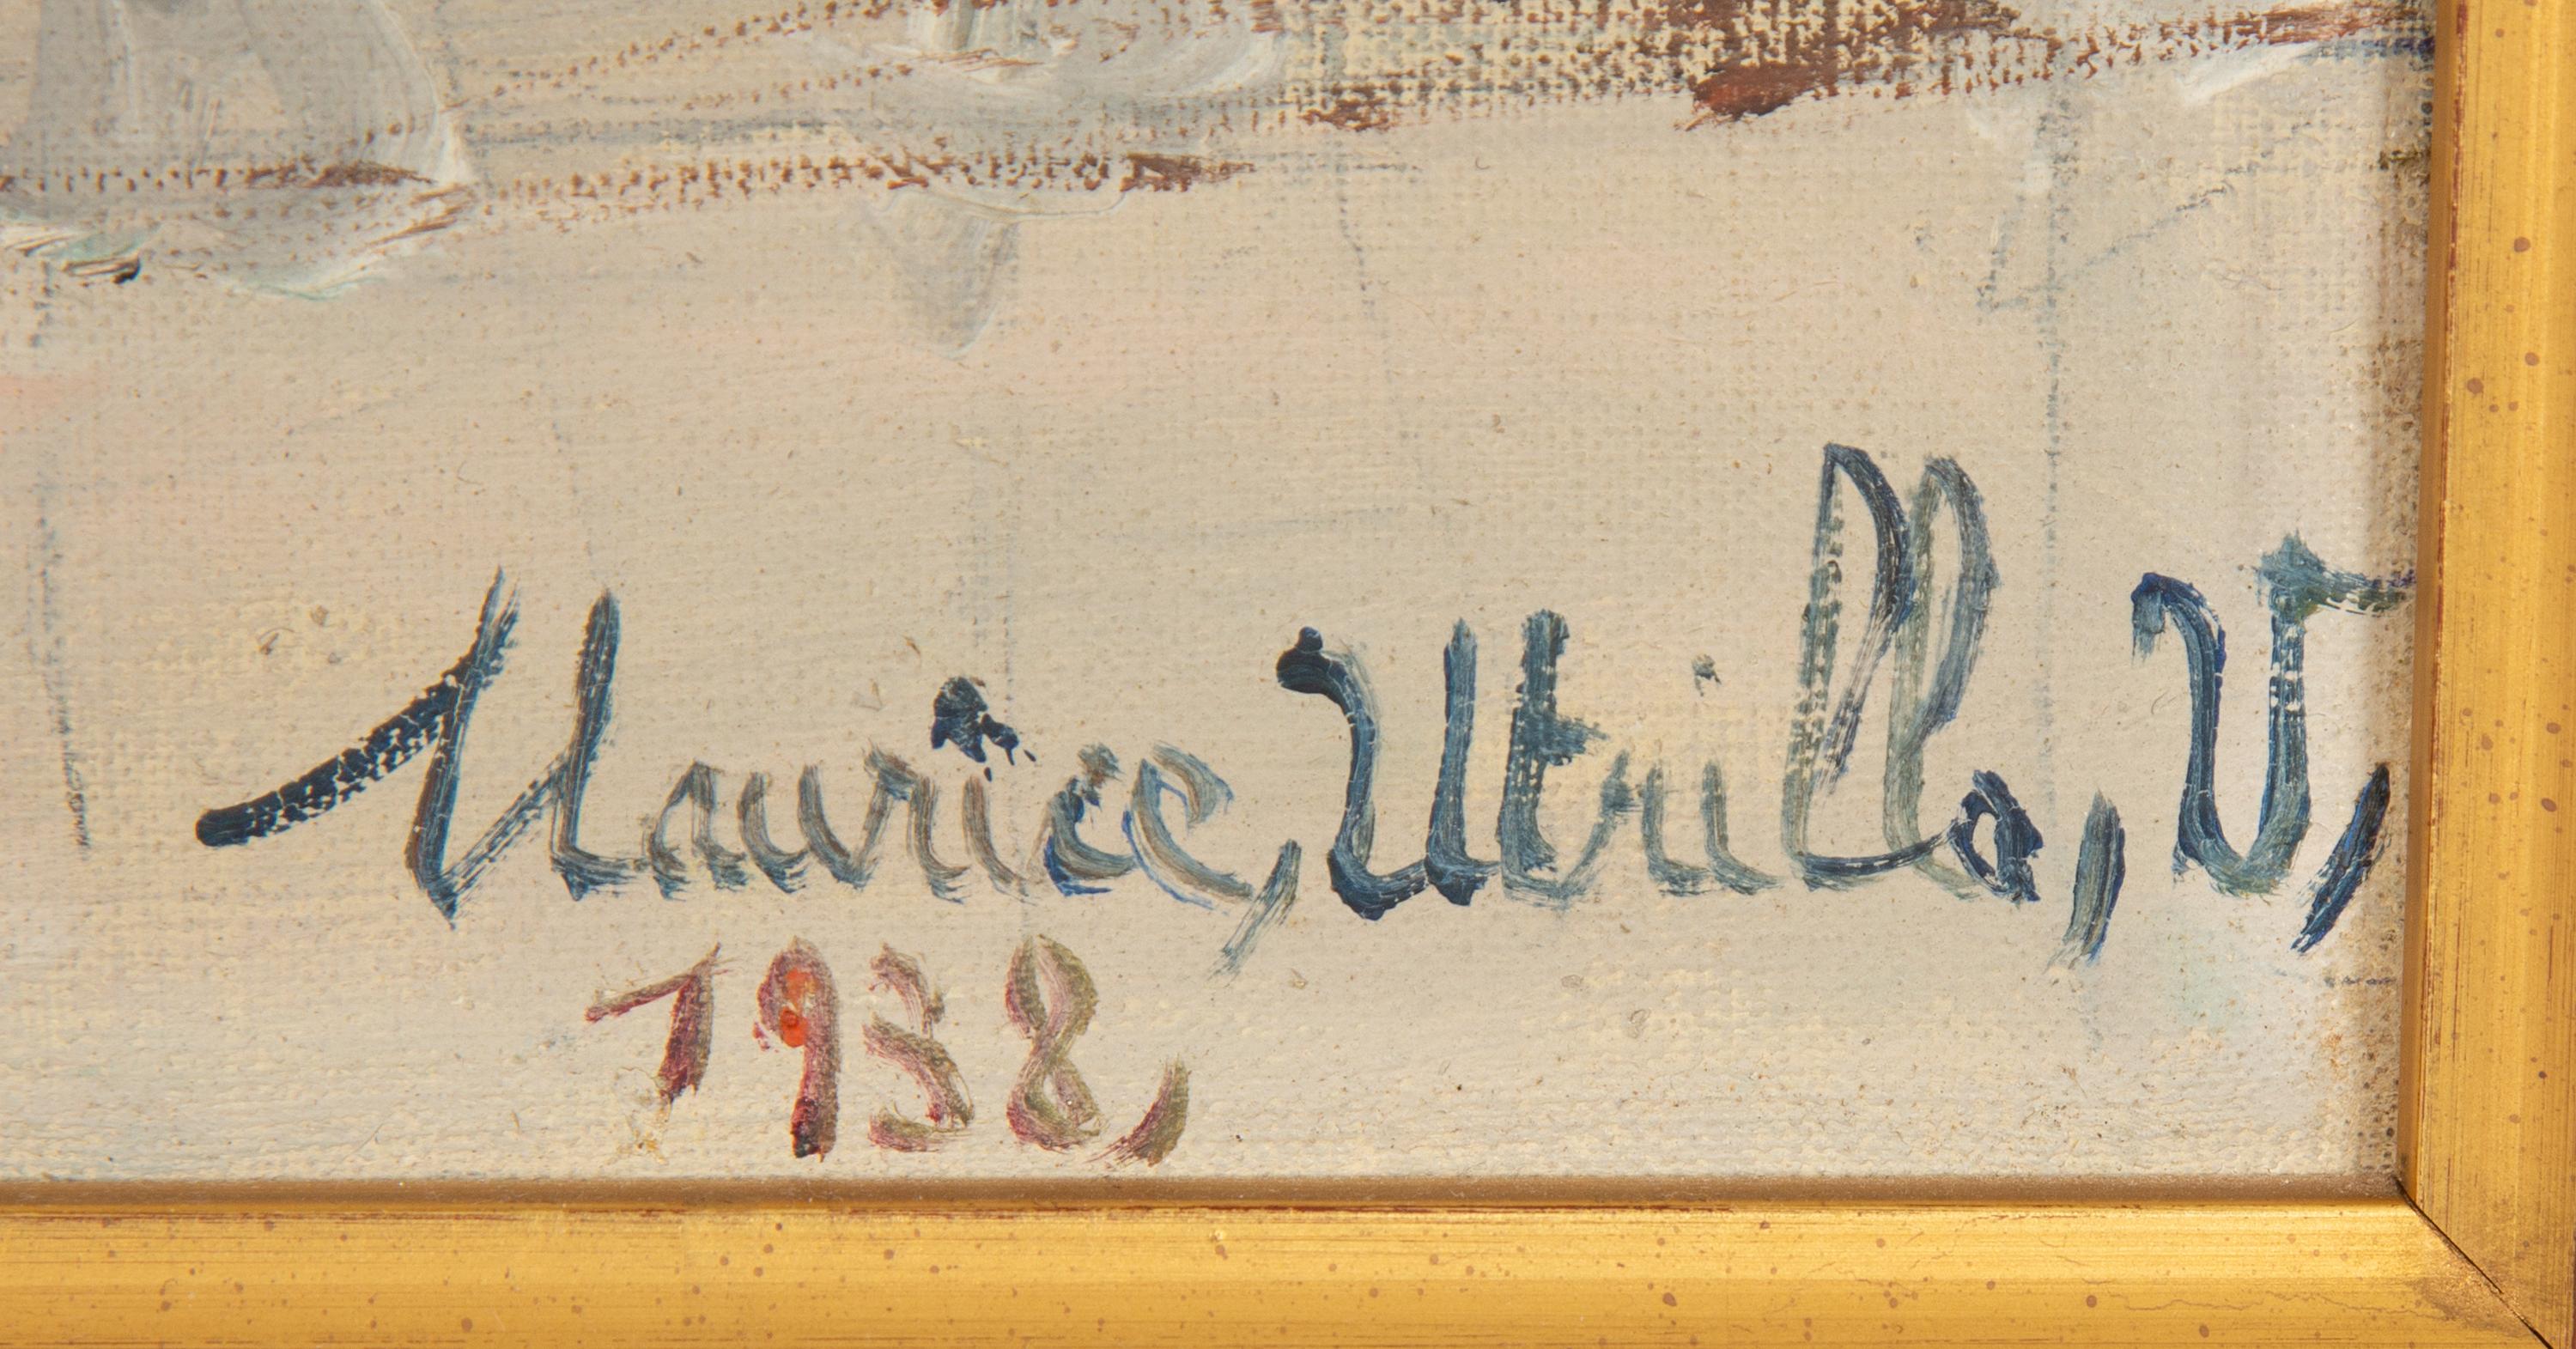 Maurice, Utrillo, V,
1938,